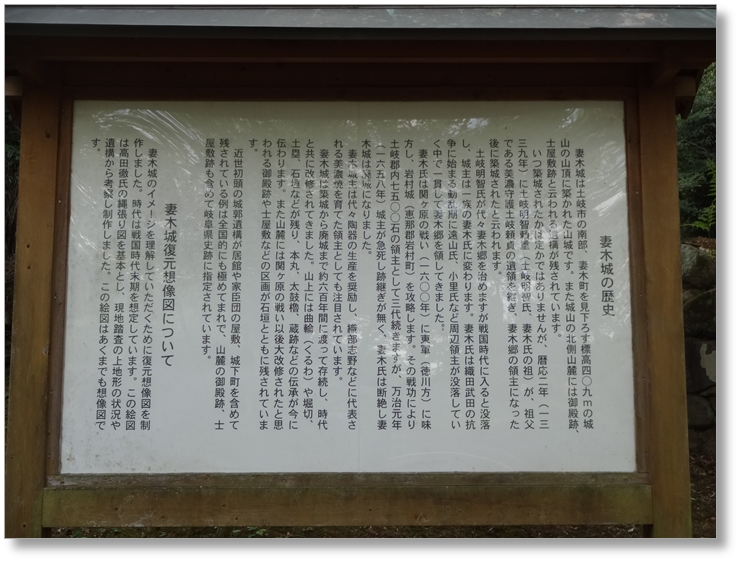 妻木城の歴史
妻木城は土岐市の南部、妻木町を見下ろす標高四〇九ｍの城
山の山頂に築かれた山城です。また城山の北側山麓には御殿跡、
士屋敷跡と云われる遺構が残されています。
いつ築城されたかは定かではありませんが、暦応二年（一三
三九年）に土岐明智頼重（土岐明智氏、妻木氏の祖）が、祖父
である美濃守護土岐頼貞の遺領を継ぎ、妻木郷の領主になった
後に築城されたと云われます。
土岐明智氏が代々妻木郷を治めますが戦国時代に入ると没落
し、城主は一族の妻木氏に変わります。妻木氏は織田武田の抗
争に始まる動乱期に遠山氏、小里氏など周辺領主が没落してい
く中で一貫して妻木郷を領してきました。
妻木氏は関ヶ原の戦い（一六〇〇年）に東軍（徳川方）に味
方し、岩村城（恵那郡岩村町）を攻略します。その戦功により
土岐郡内七五〇〇石の領主として三代続きますが、万治元年
（一六五八年）城主が急死し跡継ぎが無く、妻木氏は断絶し妻
木城は廃城になりました。
妻木城主は代々陶器の生産を奨励し、織部志野などに代表さ
れる美濃焼を育てた領主としても注目されています。
妻木城は築城から廃城まで約六百年間に渡って存続し、時代
と共に改修されてきました。山上には曲輪（くるわ）や堀切、
土塁、石垣などが残り、本丸、太鼓櫓、蔵跡などの伝承が今に
伝わります。また山麓には関ヶ原の戦い以後大改修されたと思
われる御殿跡や士屋敷などの区画が石垣とともに残されていま
す。
近世初頭の城郭遺構が居館や家臣団の屋敷、城下町を含めて
残されている例は全国的にも極めてまれで、山麓の御殿跡、士
屋敷跡も含めて岐阜県史跡に指定されています。
妻木城復元想像図について
妻木城のイメージを理解していただくために復元想像図を制
作しました。時代は戦国時代末期を想定しています。この絵図
は高田徹氏の縄張り図を基本とし、現地踏査の上地形の状況や
遺構から考察し制作しました。この絵図はあくまでも想像図で
す。